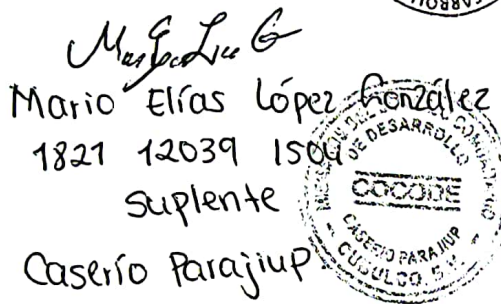 Mario Elías López González
1821 12039 1504
suplente
Caserío Parajiup.
DE DESARROLLO
COCODE
CASERIO PARAJIUP
CUBULCO, B.V.